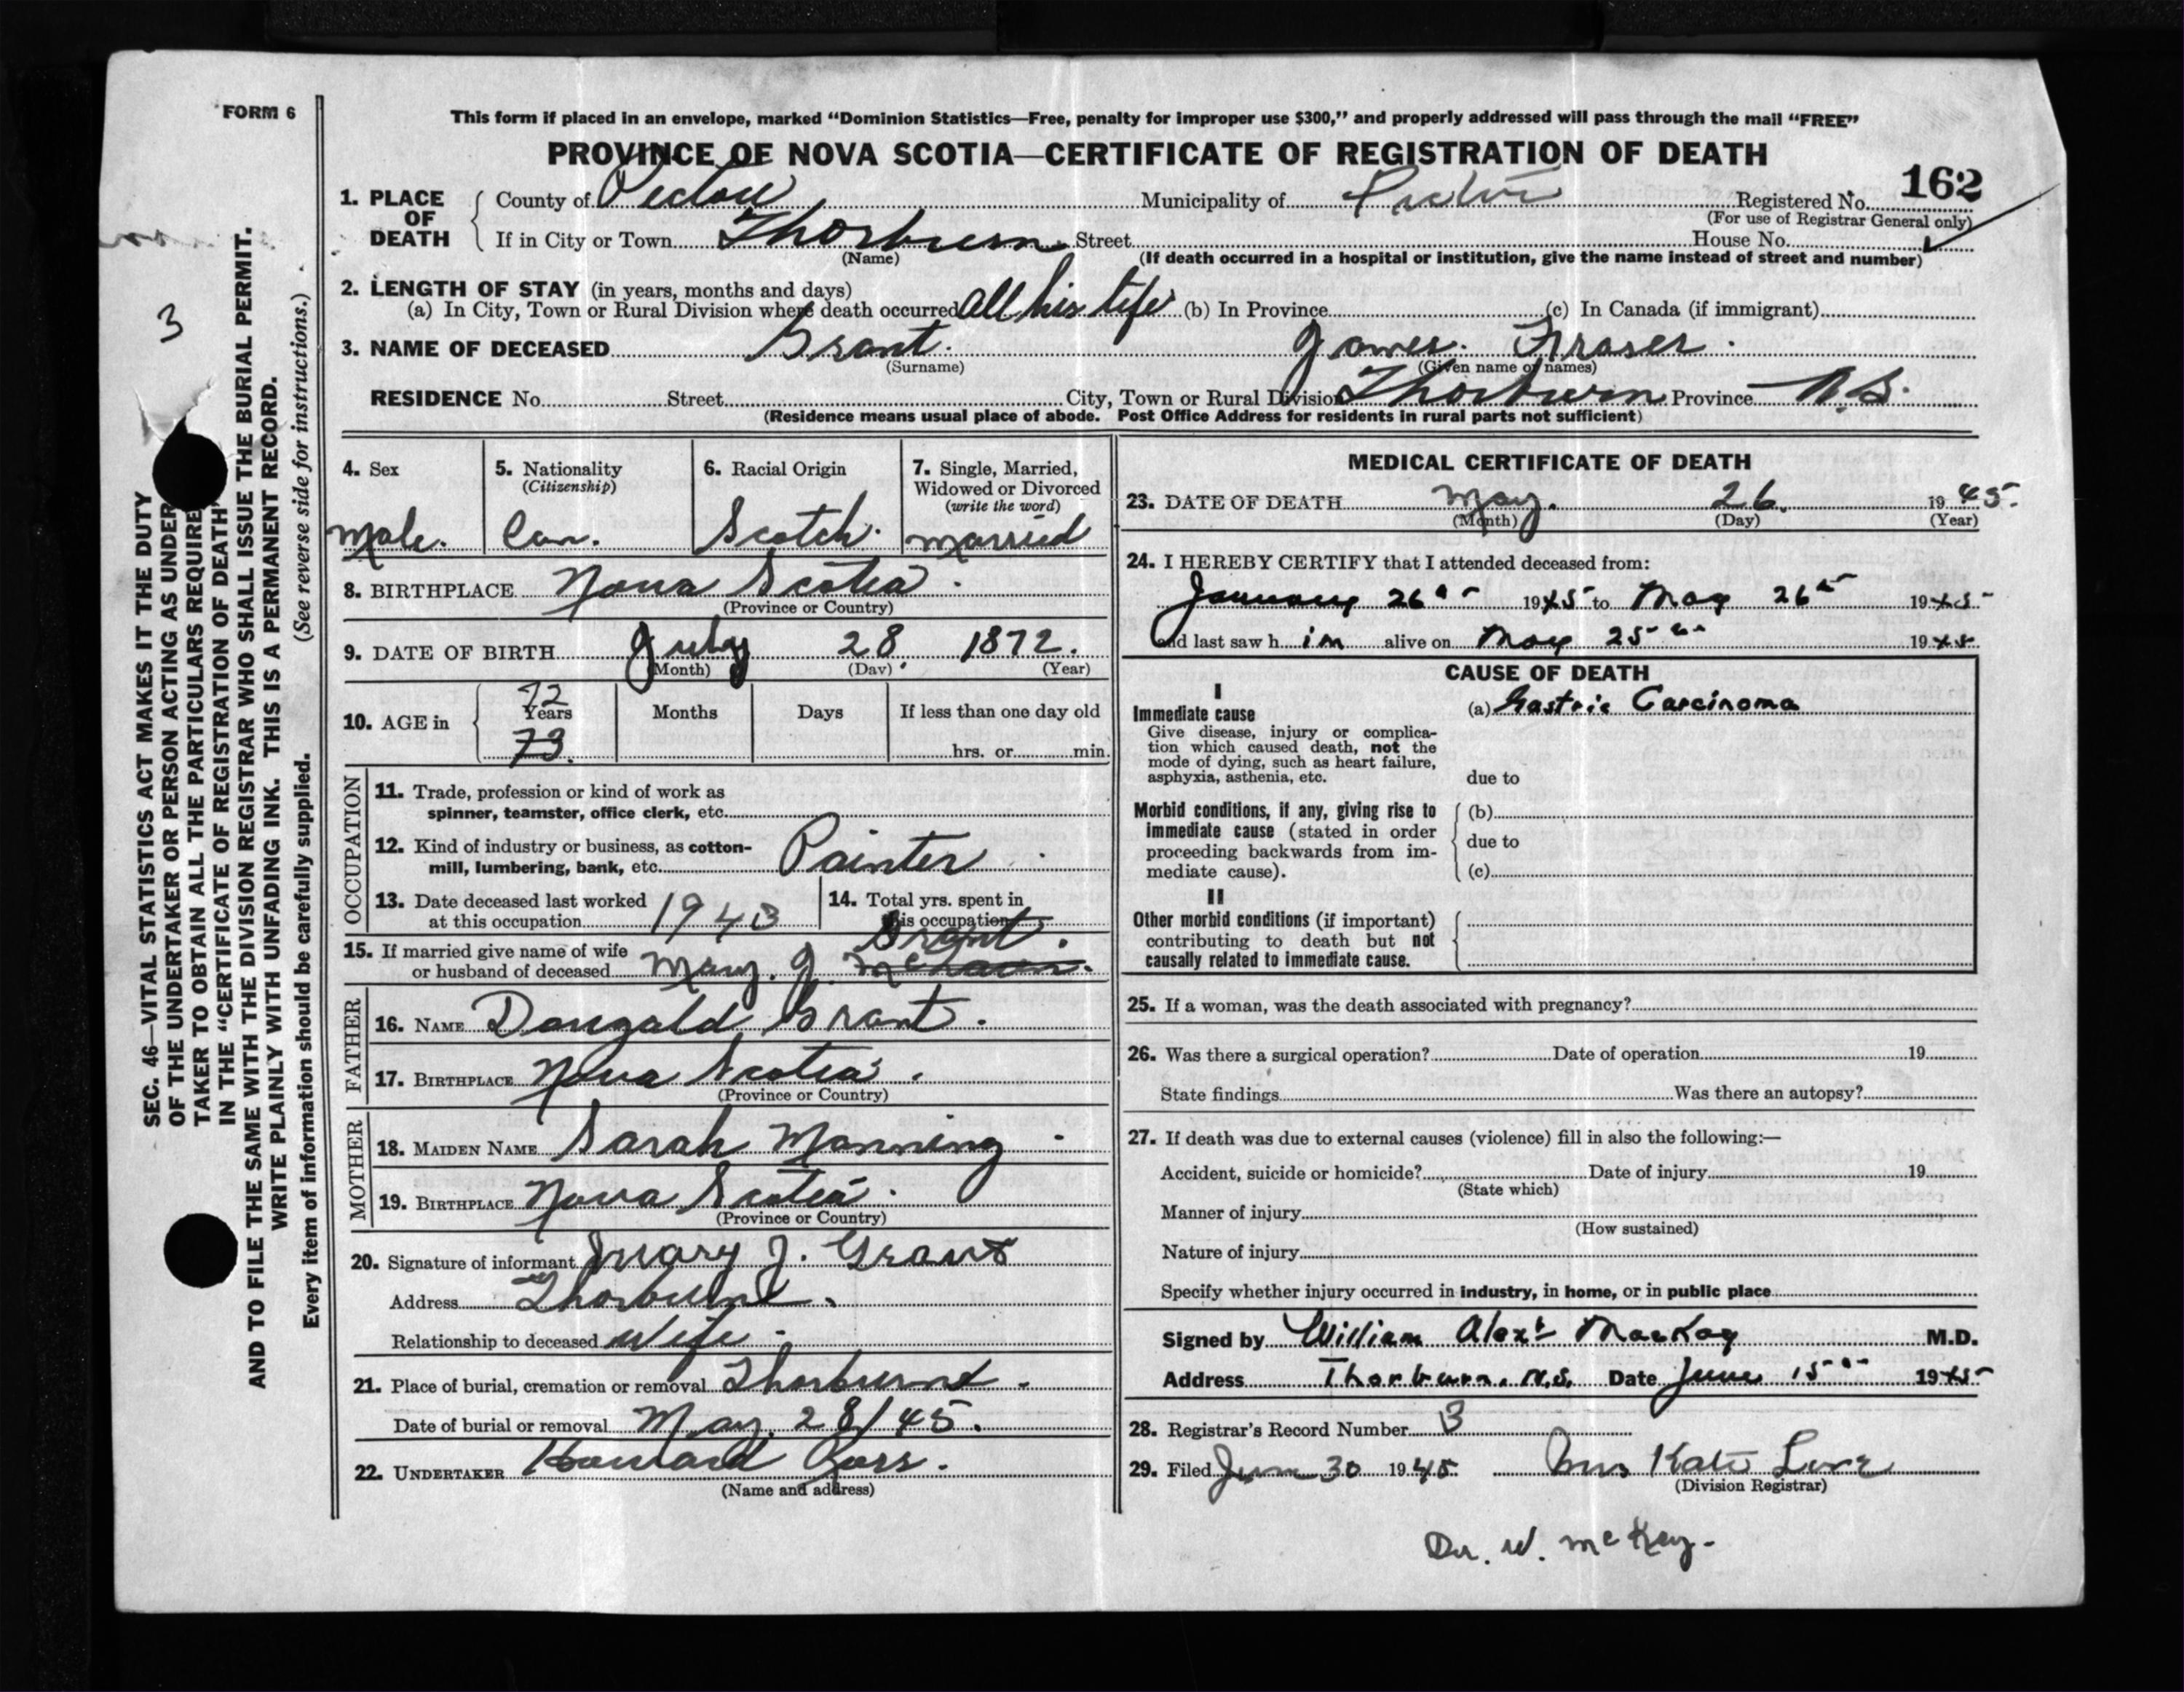 FORM 6
This form if placed in an envelope, marked “Dominion Statistics—Free, penalty for improper use $300,” and properly addressed will pass through the mail “FREE”
PROVINCE OF NOVA SCOTIA—CERTIFICATE OF REGISTRATION OF DEATH
162
1. PLACE OF DEATH County of Pictou Municipality of Pictou Registered No.
(For use of Registrar General only)
If in City or Town Thorburn Street House No.
(Name) (If death occurred in a hospital or institution, give the name instead of street and number)
2. LENGTH OF STAY (in years, months and days)
(a) In City, Town or Rural Division where death occurred all his life (b) In Province (c) In Canada (if immigrant)
3. NAME OF DECEASED Grant. James. Fraser.
(Surname) (Given name or names)
RESIDENCE No. Street City, Town or Rural Division Thorburn Province N.S.
(Residence means usual place of abode. Post Office Address for residents in rural parts not sufficient)
4. Sex 5. Nationality (Citizenship) 6. Racial Origin 7. Single, Married, Widowed or Divorced (write the word)
Male. Can. Scotch. Married
8. BIRTHPLACE Nova Scotia.
(Province or Country)
9. DATE OF BIRTH July 28. 1872.
(Month) (Day) (Year)
72
10. AGE in Years Months Days If less than one day old
73. hrs. or min.
OCCUPATION
11. Trade, profession or kind of work as
spinner, teamster, office clerk, etc.
12. Kind of industry or business, as cotton-
mill, lumbering, bank, etc. Painter.
13. Date deceased last worked
at this occupation 1943
14. Total yrs. spent in
this occupation
Grant.
15. If married give name of wife
or husband of deceased Mary. J.
FATHER
16. NAME Dougald Grant.
17. BIRTHPLACE Nova Scotia.
(Province or Country)
MOTHER
18. MAIDEN NAME Sarah Manning.
19. BIRTHPLACE Nova Scotia.
(Province or Country)
20. Signature of informant Mary J. Grant
Address Thorburn.
Relationship to deceased Wife.
21. Place of burial, cremation or removal Thorburn.
Date of burial or removal May. 28/45.
22. UNDERTAKER Howard Ross.
(Name and address)
MEDICAL CERTIFICATE OF DEATH
23. DATE OF DEATH May. 26. 1945.
(Month) (Day) (Year)
24. I HEREBY CERTIFY that I attended deceased from:
January 26th 1945 to May 26th 1945
and last saw h im alive on May 25th 1945
CAUSE OF DEATH
I
Immediate cause (a) Gastric Carcinoma
Give disease, injury or complica-
tion which caused death, not the
mode of dying, such as heart failure,
asphyxia, asthenia, etc. due to
Morbid conditions, if any, giving rise to (b)
immediate cause (stated in order
proceeding backwards from im- due to
mediate cause). (c)
II
Other morbid conditions (if important)
contributing to death but not
causally related to immediate cause.
25. If a woman, was the death associated with pregnancy?
26. Was there a surgical operation? Date of operation 19
State findings Was there an autopsy?
27. If death was due to external causes (violence) fill in also the following:—
Accident, suicide or homicide? Date of injury 19
(State which)
Manner of injury
(How sustained)
Nature of injury
Specify whether injury occurred in industry, in home, or in public place
Signed by William Alexr MacKay M.D.
Address Thorburn. N.S. Date June 15th 1945
28. Registrar's Record Number 3
29. Filed June 30 1945. Mrs Kate
(Division Registrar)
Dr. W. McKay.
3
SEC. 46—VITAL STATISTICS ACT MAKES IT THE DUTY
OF THE UNDERTAKER OR PERSON ACTING AS UNDER
TAKER TO OBTAIN ALL THE PARTICULARS REQUIRE
IN THE “CERTIFICATE OF REGISTRATION OF DEATH”
AND TO FILE THE SAME WITH THE DIVISION REGISTRAR WHO SHALL ISSUE THE BURIAL PERMIT.
WRITE PLAINLY WITH UNFADING INK. THIS IS A PERMANENT RECORD.
Every item of information should be carefully supplied. (See reverse side for instructions.)